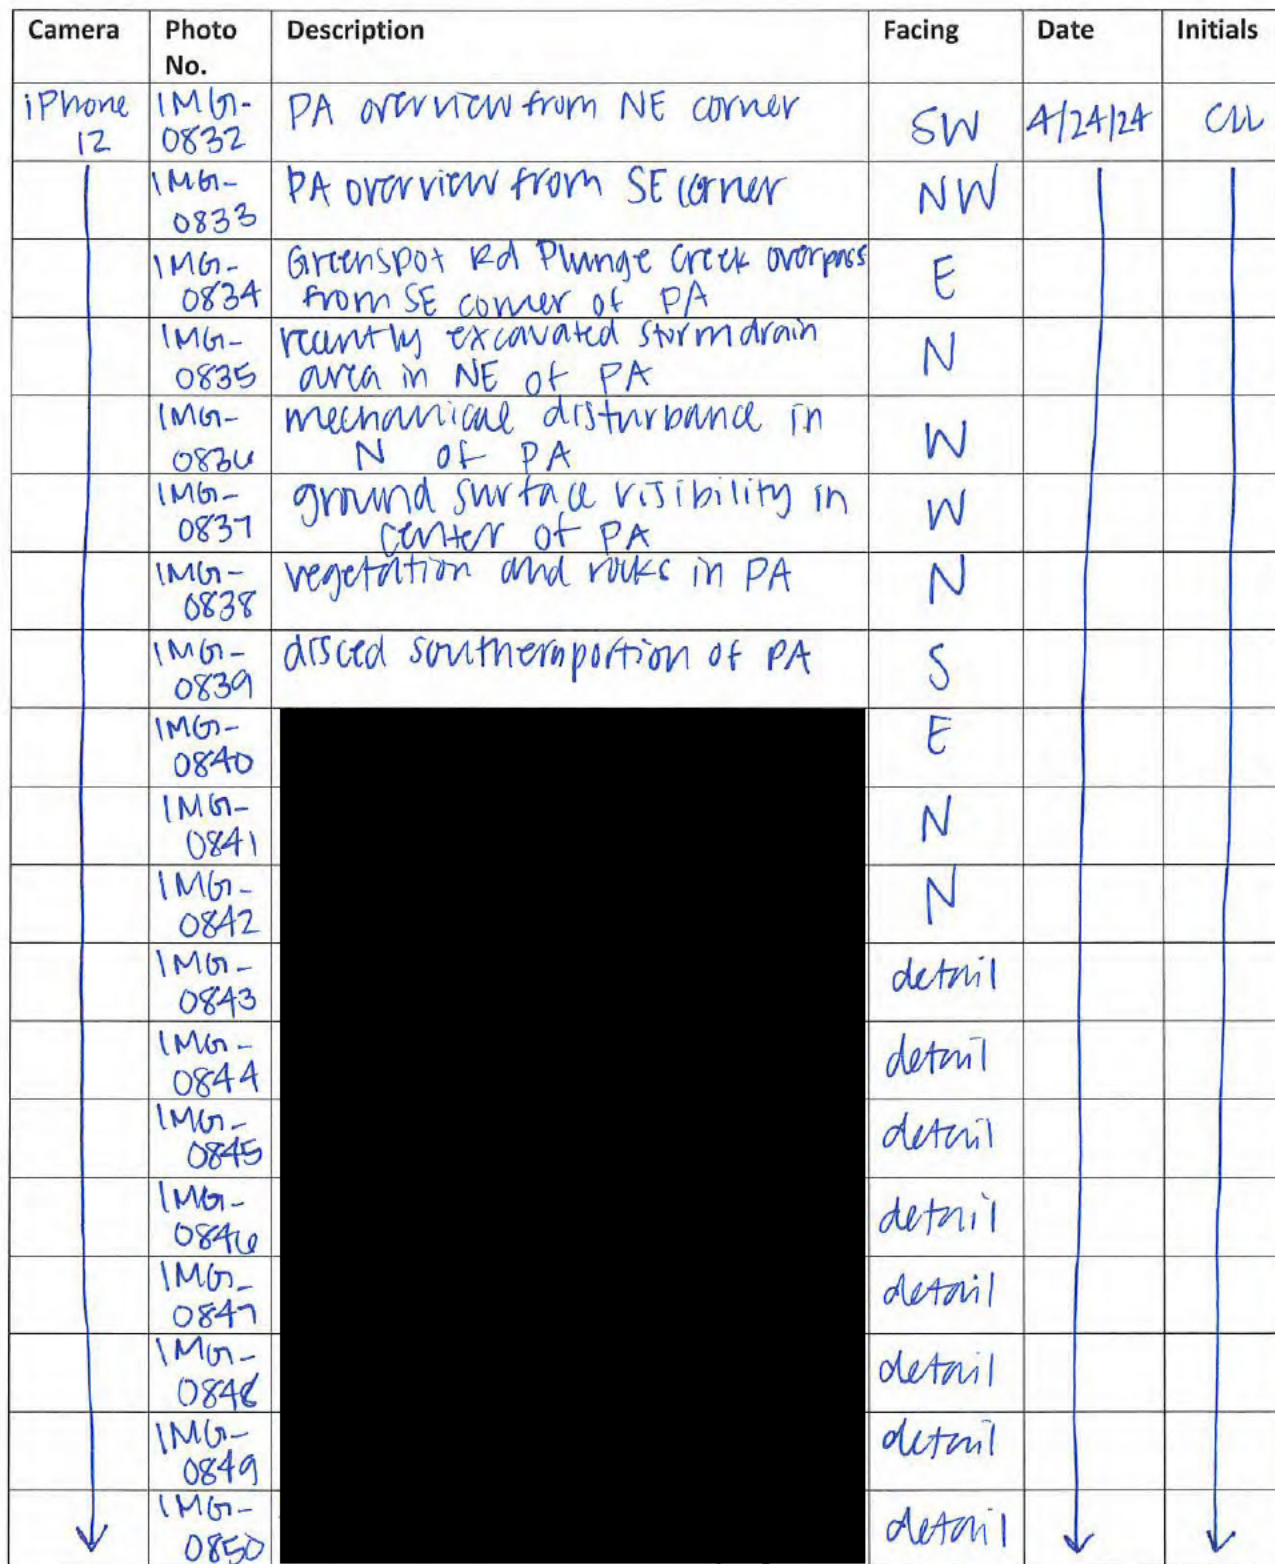 Camera Photo No. Description Facing Date Initials
iPhone 12 IMG-0832 PA overview from NE corner SW 4/24/24
IMG-0833 PA overview from SE corner NW
IMG-0834 Greenspot Rd Plunge Creek overpass from SE corner of PA E
IMG-0835 recently excavated storm drain area in NE of PA N
IMG-0836 mechanical disturbance in N of PA W
IMG-0837 ground surface visibility in center of PA W
IMG-0838 vegetation and rocks in PA N
IMG-0839 disced southern portion of PA S
IMG-0840 E
IMG-0841 N
IMG-0842 N
IMG-0843 detail
IMG-0844 detail
IMG-0845 detail
IMG-0846 detail
IMG-0847 detail
IMG-0848 detail
IMG-0849 detail
IMG-0850 detail